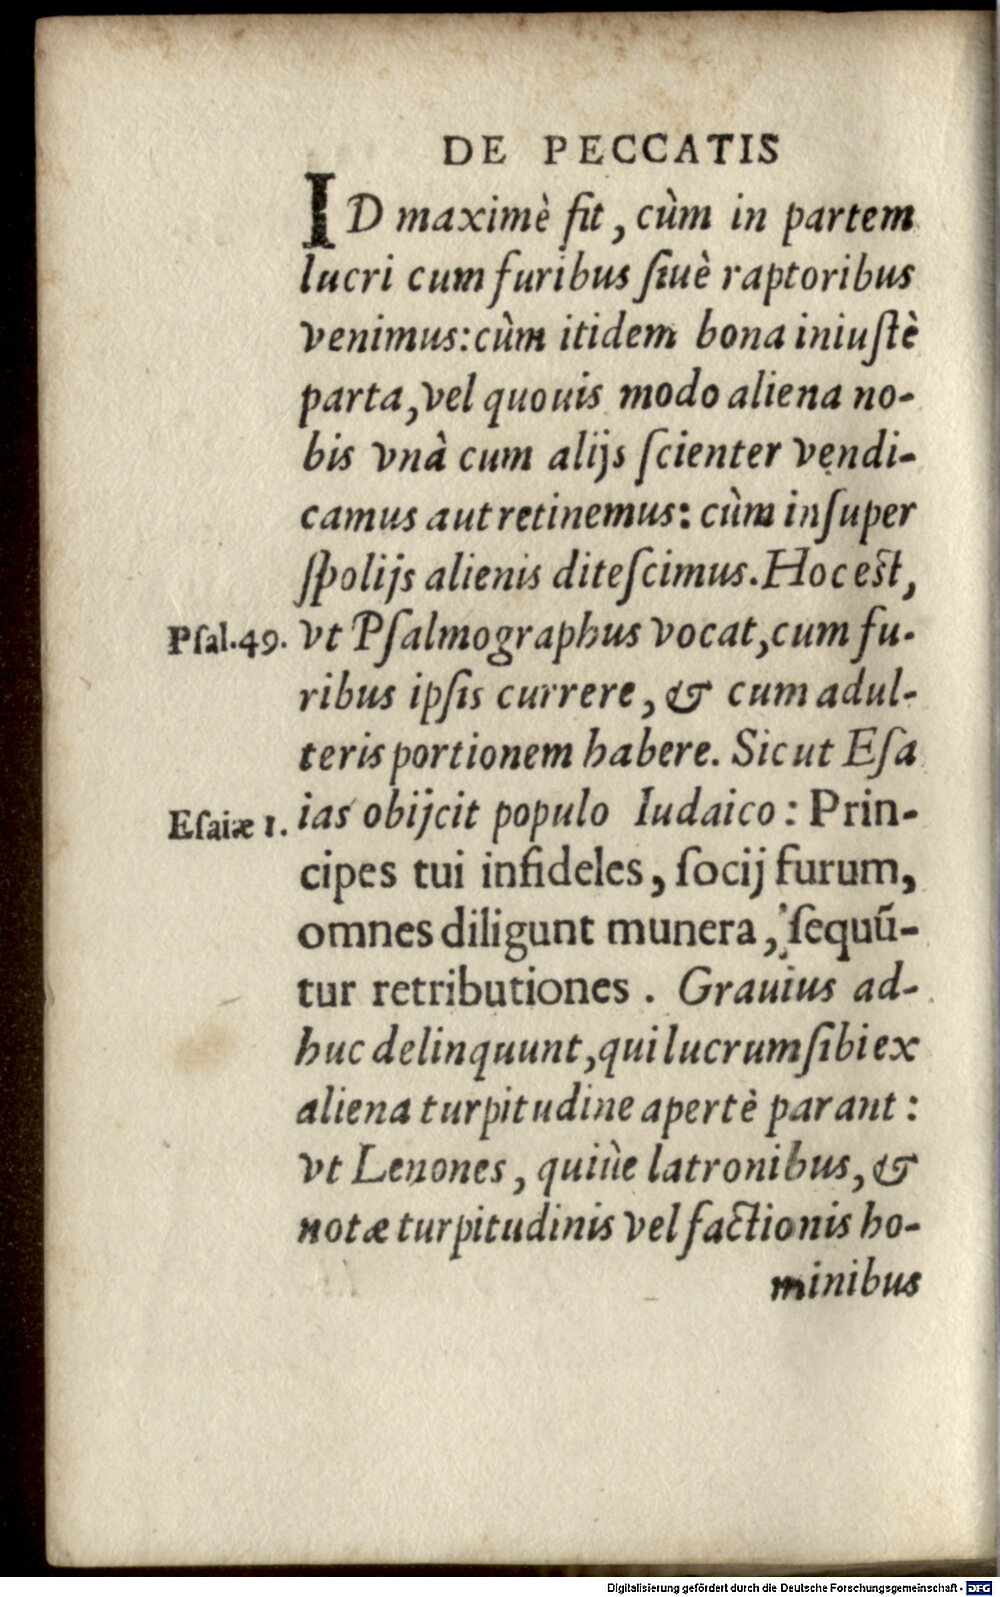 DE PECCATIS
ID maximè fit, cùm in partem
lucri cum furibus ſiuè raptoribus
venimus: cùm itidem bona iniuſtè
parta, vel quouis modo aliena no-
bis vnà cum alijs ſcienter vendi-
camus aut retinemus: cùm inſuper
ſpolijs alienis diteſcimus. Hoc eſt,
Pſal. 49. vt Pſalmographus vocat, cum fu-
ribus ipſis currere, & cum adul-
teris portionem habere. Sicut Eſa
Eſaiæ 1. ias obijcit populo Iudaico: Prin-
cipes tui infideles, ſocij furum,
omnes diligunt munera, ſequũ-
tur retributiones. Grauius ad-
huc delinquunt, qui lucrum ſibi ex
aliena turpitudine apertè parant:
vt Lenones, quiùe latronibus, &
notæ turpitudinis vel factionis ho-
minibus
Digitalisierung gefördert durch die Deutsche Forschungsgemeinschaft - DFG